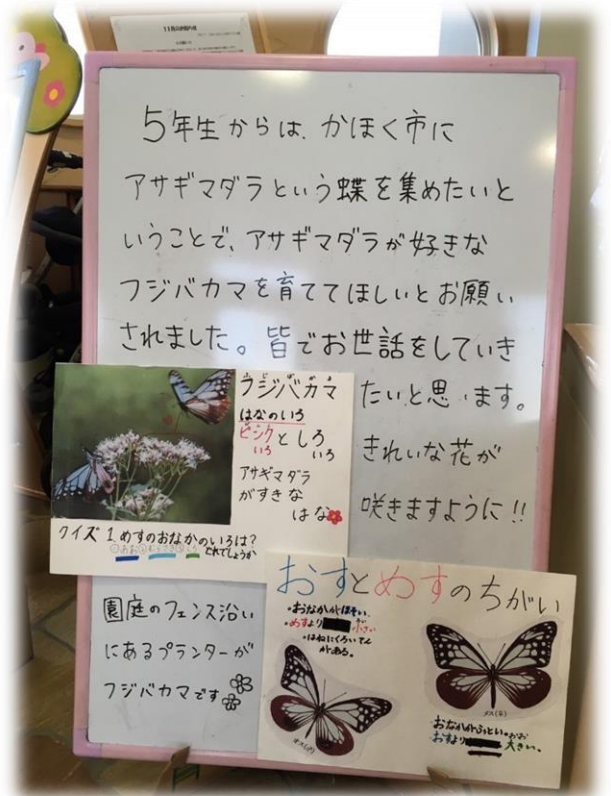 11月の
5年生からは、かほく市に
アサギマダラという蝶を集めたいと
いうことで、アサギマダラが好きな
フジバカマを育ててほしいとお願い
されました。皆でお世話をしていき
たいと思います。
きれいな花が
咲きますように!!
フジバカマ
はなのいろ
ピンクとしろ
いろ いろ
アサギマダラ
がすきな
はな
クイズ 1 めすのおなかのいろは?
どれでしょうか
園庭のフェンス沿い
にあるプランターが
フジバカマです
おすとめすのちがい
・おなかがほそい。
・めすより 小さい
・はねにくろいてん
がある。
オス(♂)
メス(♀)
おなかがふとい。
おすより 大きい。